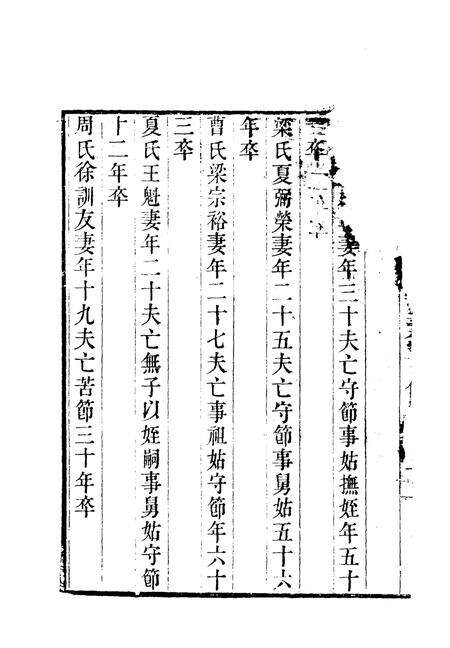 妻年三十夫亡守節事姑撫姪年五十
三卒
梁氏夏弼榮妻年二十五夫亡守節事舅姑五十六
年卒
曹氏梁宗裕妻年二十七夫亡事祖姑守節年六十
三卒
夏氏王魁妻年二十夫亡無子以姪嗣事舅姑守節
十二年卒
周氏徐訓友妻年十九夫亡苦節三十年卒